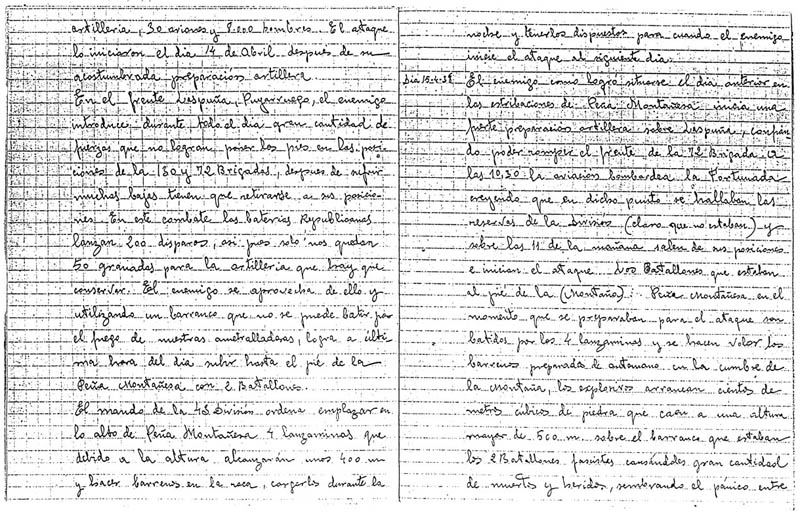 artilleria, 30 aviones y 8.000 hombres. El ataque
lo iniciaron el dia 14 de Abril despues de su
acostumbrada preparacion artillera
En el frente Lespuña, Puyarruego, el enemigo
introduce durante todo el dia gran cantidad de
fuerzas que no logran poner los pies en las posi-
ciones de la 130 y 72 Brigadas, despues de sufrir
muchas bajas tienen que retirarse a sus posicio-
nes. En este combate las baterias Republicanas
lanzan 200 disparos, asi pues solo nos quedan
50 granadas para la artilleria que hay que
conservar. El enemigo se aprovecha de ello y
utilizando un barranco que no se puede batir por
el fuego de nuestras ametralladoras, logra a ulti-
ma hora del dia subir hasta el pié de la
Peña Montañesa con 2 Batallones.
El mando de la 43 Division ordena emplazar en
lo alto de Peña Montañesa 4 Lanzaminas que
debido a la altura alcanzarán unos 400 m
y hacer barrenos en la roca, cargarlos durante la
noche y tenerlos dispuestos para cuando el enemigo
inicie el ataque al siguiente dia.
Dia 15-4-38 El enemigo como logro situarse el dia anterior en
las estribaciones de Peña Montañesa inicia una
fuerte preparacion artillera sobre Lespuña, confian-
do poder romper el frente de la 72 Brigada. A
las 10,30 la aviacion bombardea la Fortunada
creyendo que en dicho punto se hallaban las
reservas de la Division (claro que no estaban) y
sobre las 11 de la mañana salen de sus posiciones
e inician el ataque. Dos Batallones que estaban
al pié de la (Montaña): Peña Montañesa en el
momento que se preparaban para el ataque son
batidos por los 4 lanzaminas y se hacen volar los
barrenos preparados de antemano en la cumbre de
la Montaña, los explosivos arrancan cientos de
metros cubicos de piedra que caen a una altura
mayor de 500 m. sobre el barranco que estaban
los 2 Batallones fascistas causándoles gran cantidad
de muertos y heridos, sembrando el pánico entre